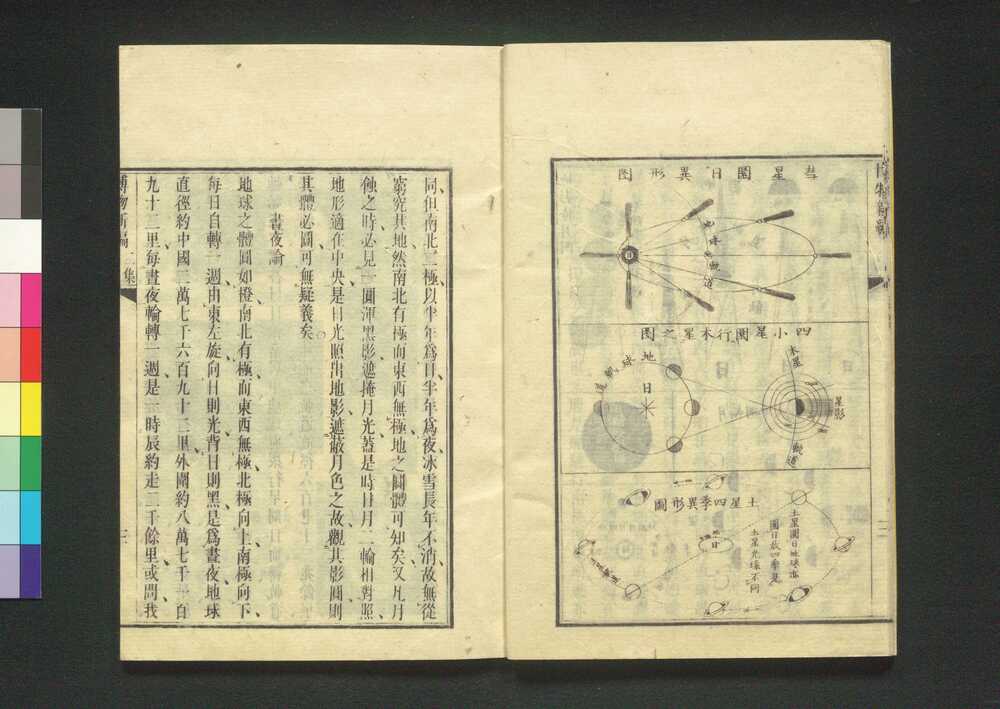 彗星圜日異形圖
地球軌道
四小星圜行木星之圖
地球軌道
日
木星
星影
軌道
土星四季異形圖
土星圜日與地球亦
圜日故四季見
土星光環不同
日
同、但南北二極以半年爲日半年爲夜冰雪長年不消故無從
窮究其地然南北有極而東西無極地之圓體可知矣又凡月
蝕之時必見一圓渾黑影遮掩月光蓋是時日月二輪相對照、
地形適在中央是日光照出地影遮蔽月色之故觀其影圓則
其體必圓可無疑義矣
晝夜論
地球之體圓如橙南北有極而東西無極北極向上南極向下、
每日自轉一週由東左旋向日則光背日則黑是爲晝夜地球
直徑約中國二萬七千六百九十二里外圍約八萬七千一百
九十二里每晝夜輪轉一週是一時辰約走二千餘里或問我
博物新編 二集